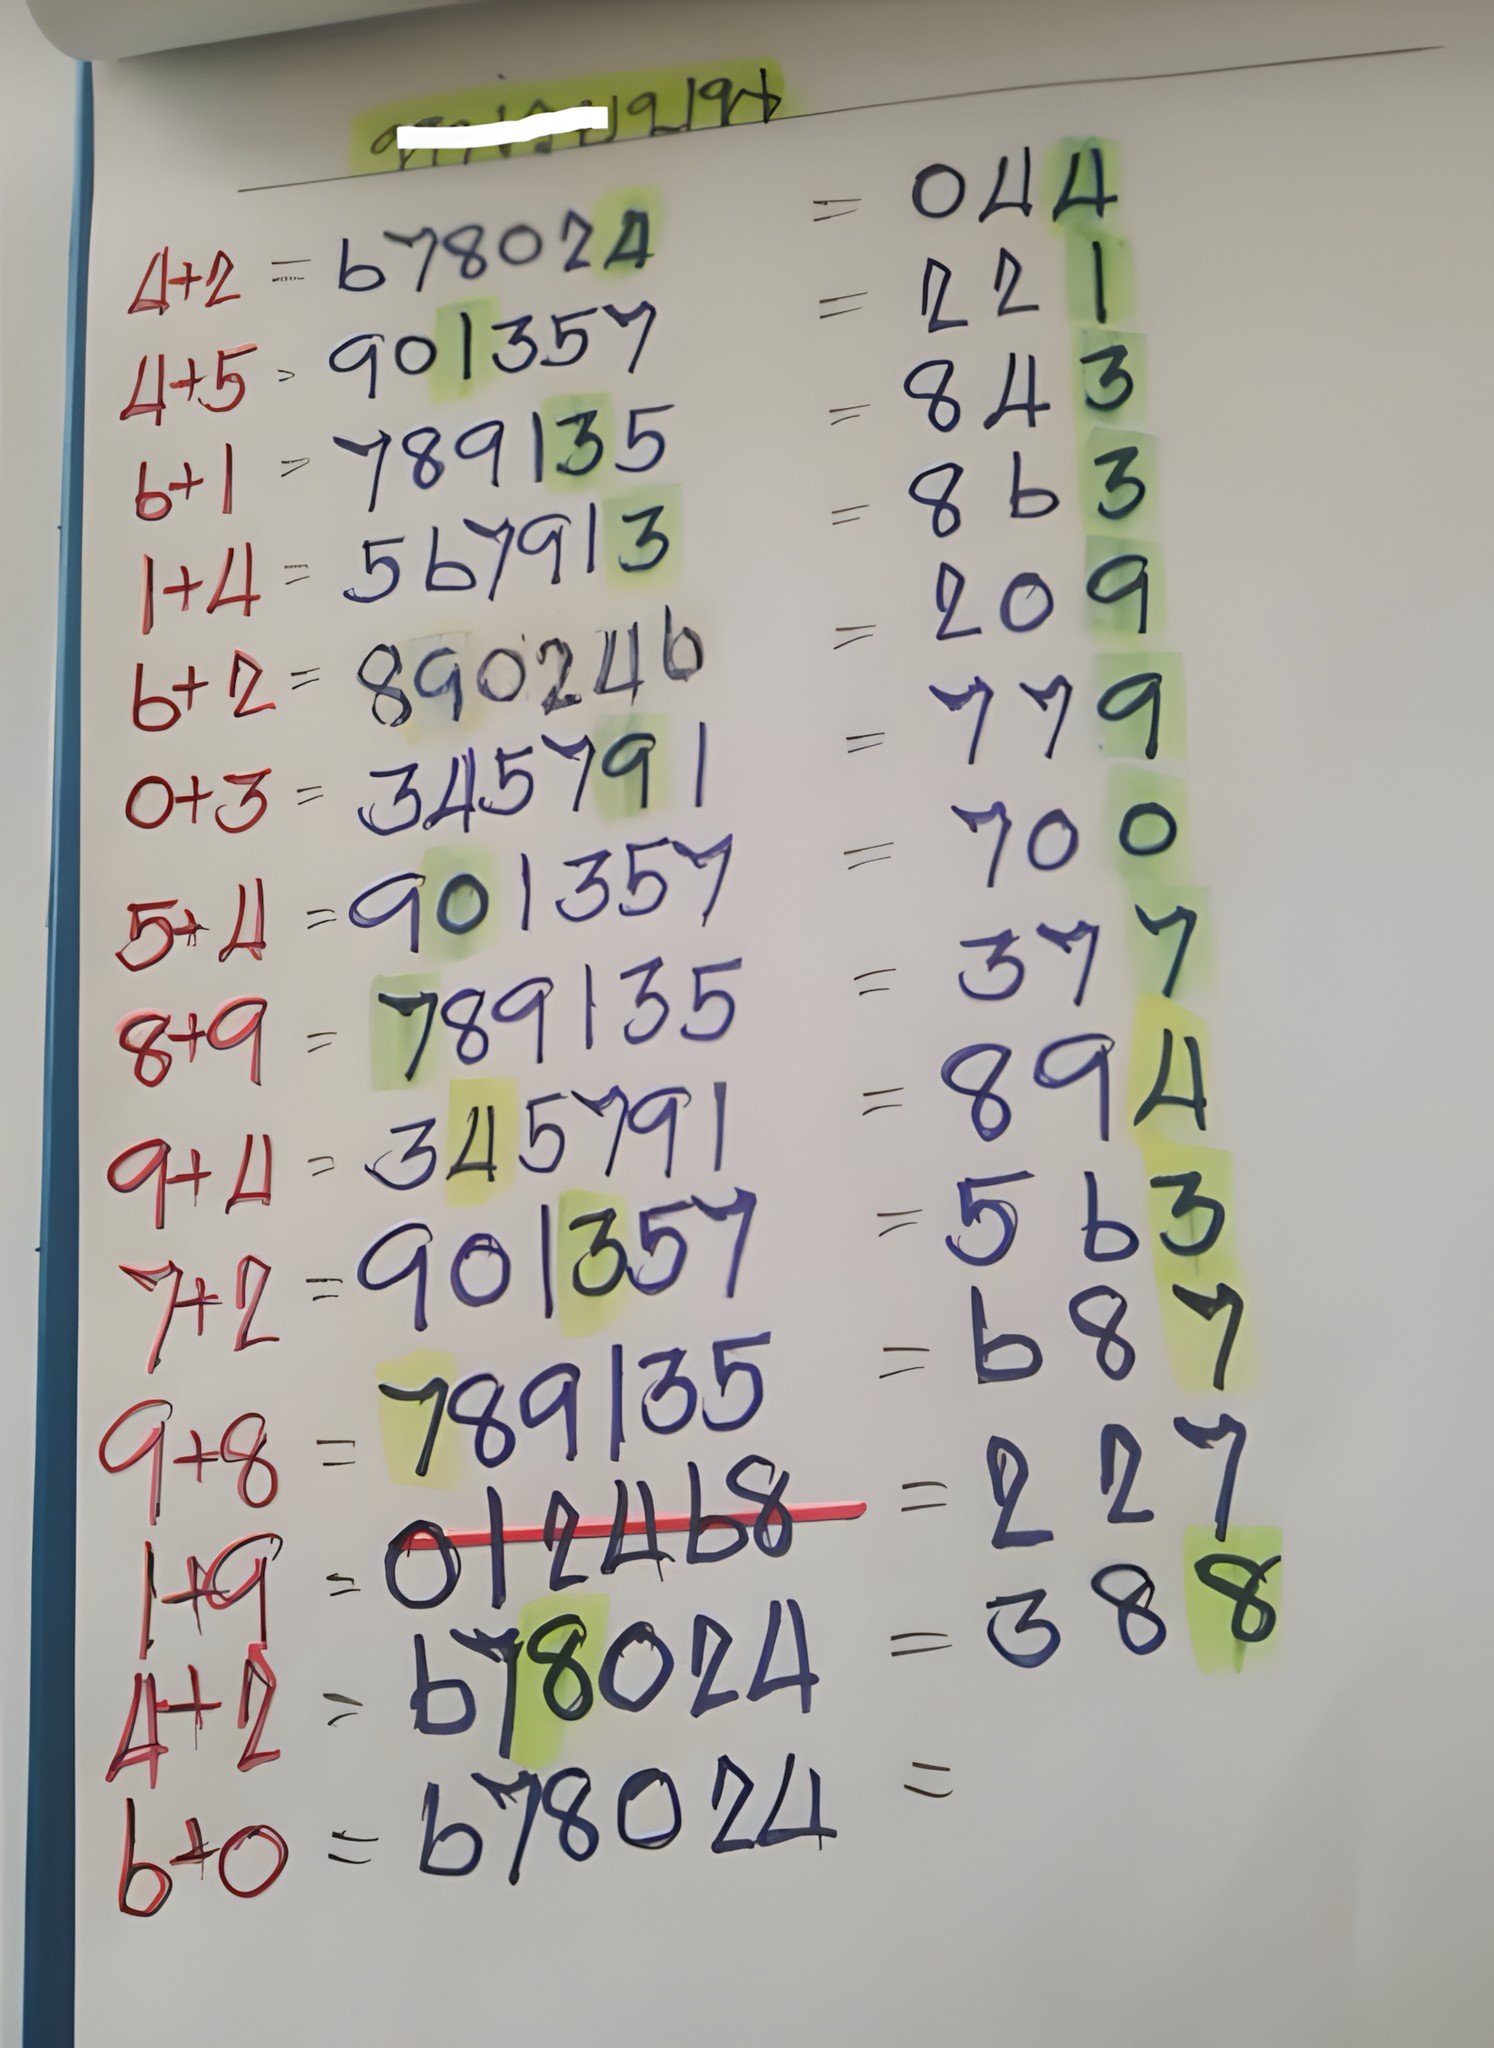 4+2 = 678024 = 044
4+5 = 901357 = 221
6+1 = 789135 = 843
1+4 = 567913 = 863
6+2 = 890246 = 209
0+3 = 345791 = 779
5+4 = 901357 = 700
8+9 = 789135 = 377
9+4 = 345791 = 894
7+2 = 901357 = 563
9+8 = 789135 = 687
1+9 = 012468 = 227
4+2 = 678024 = 388
6+0 = 678024 =